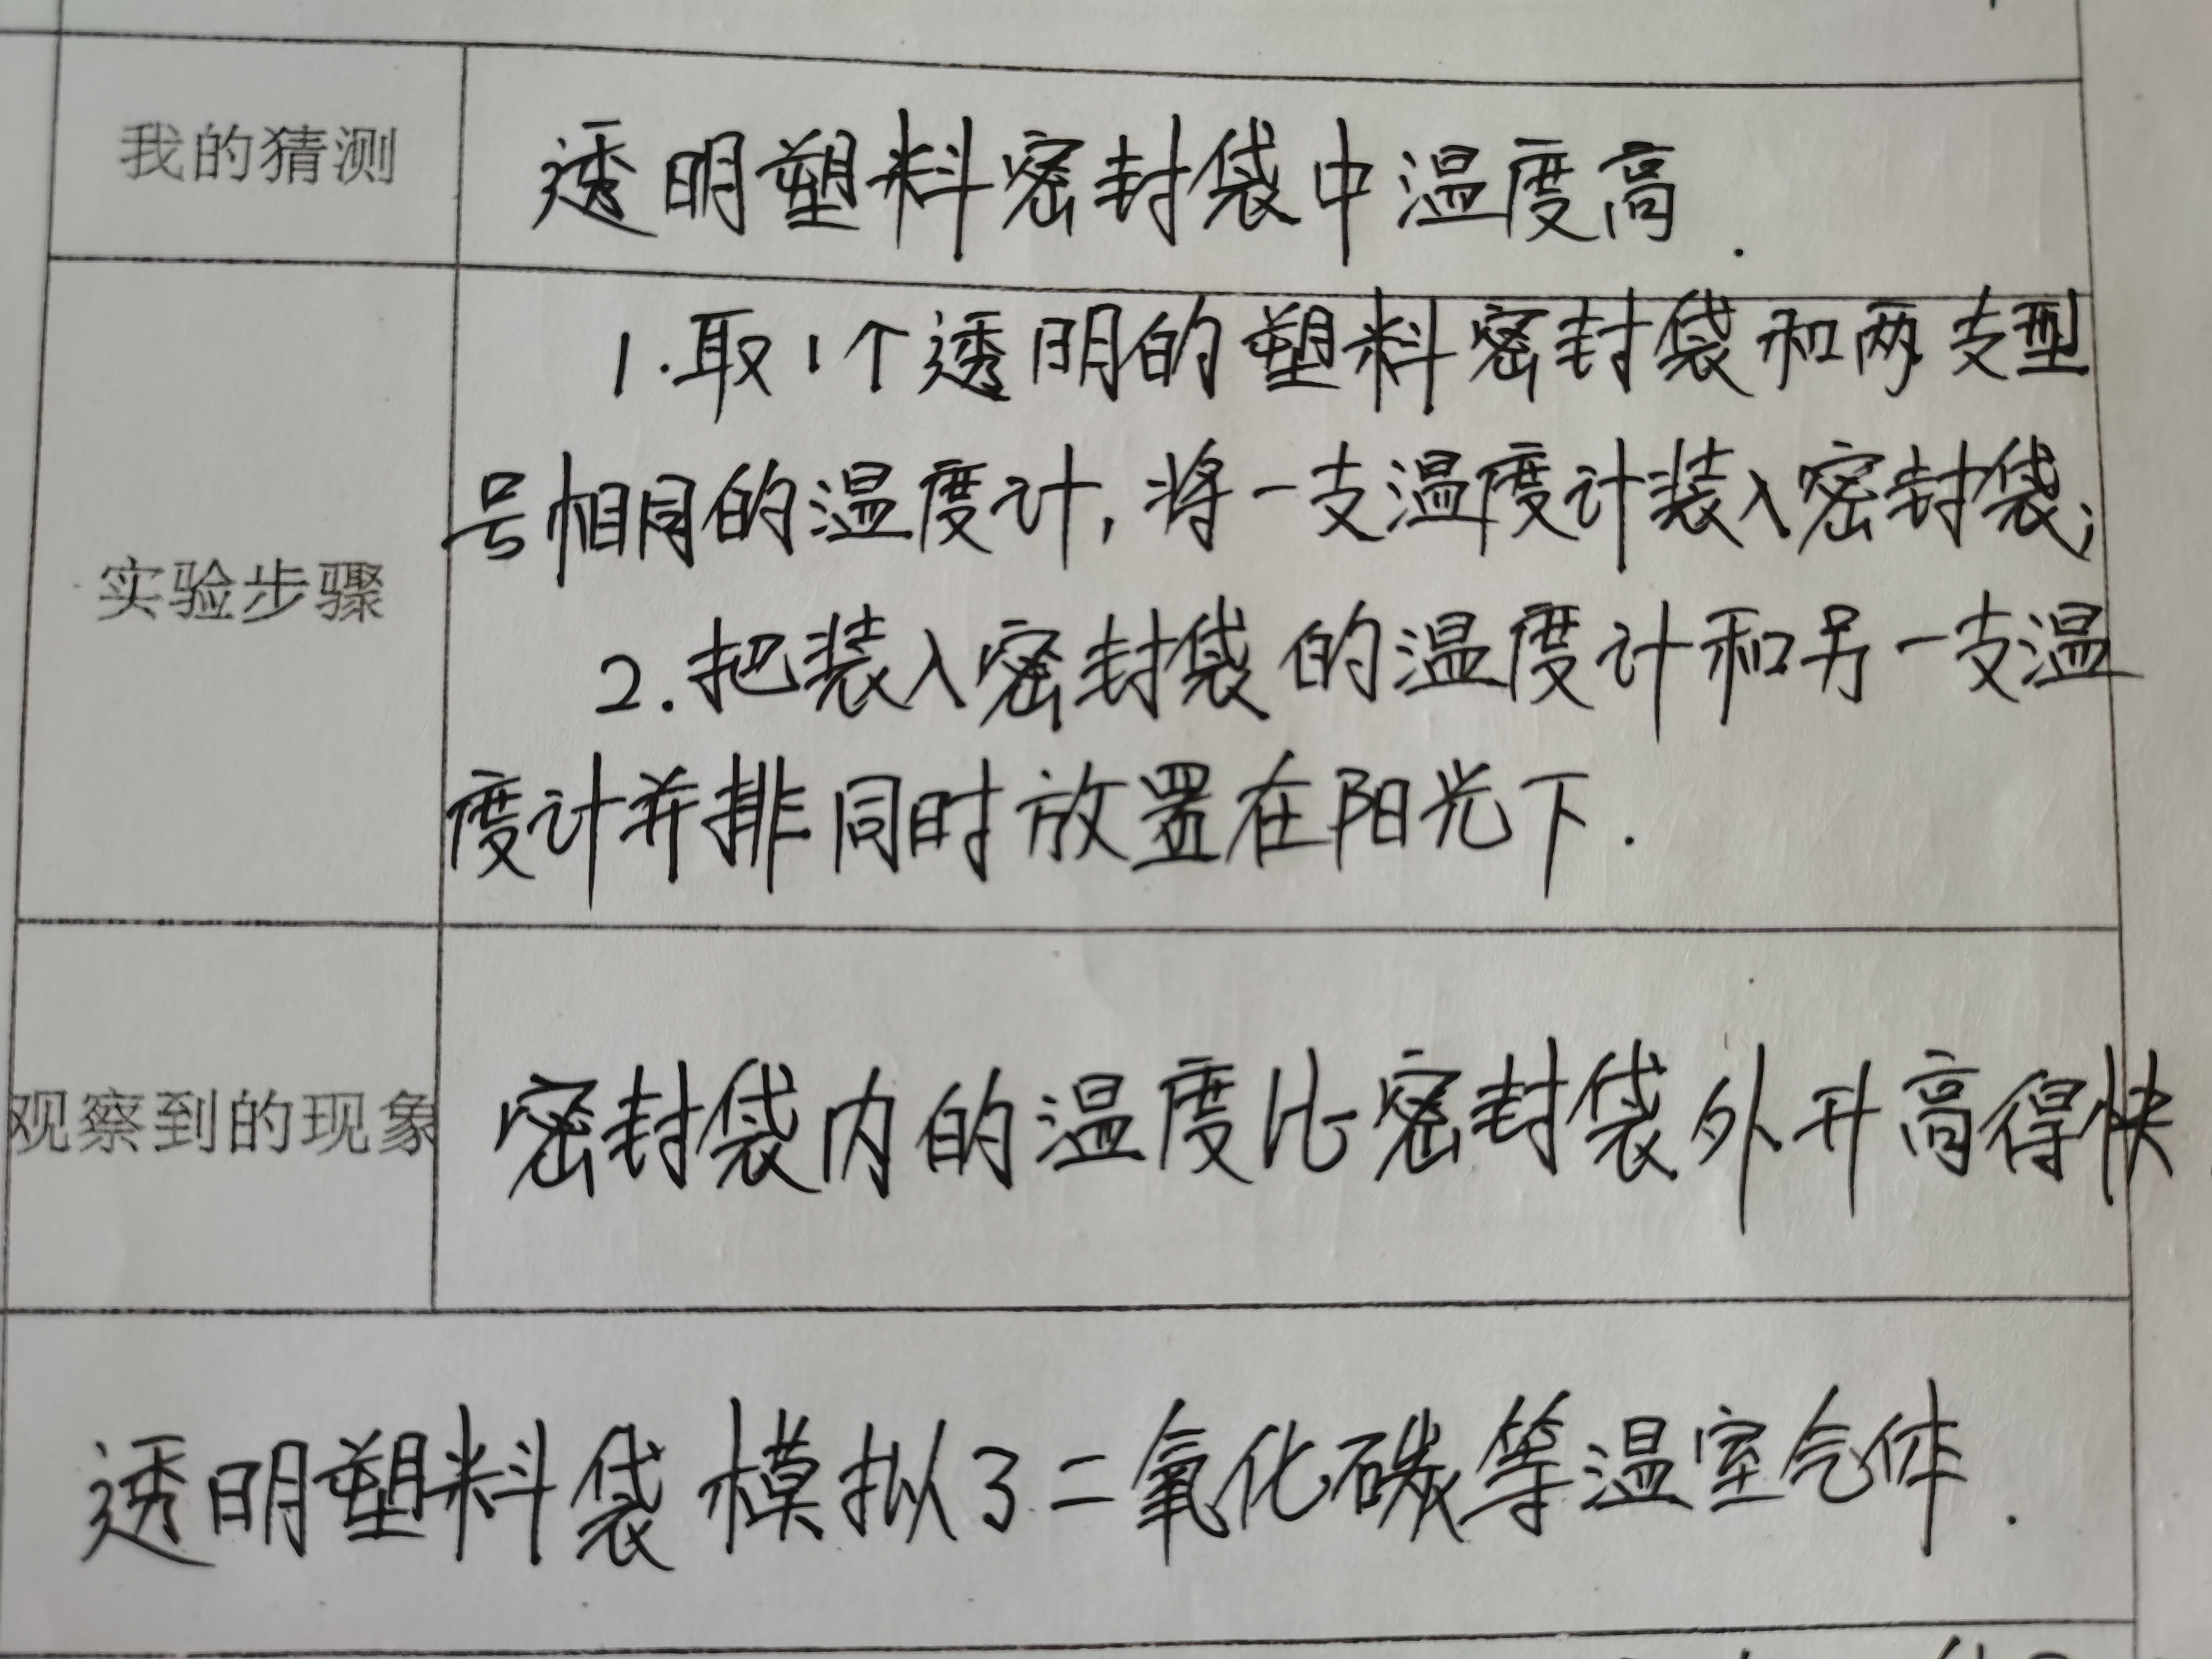 我的猜测
透明塑料密封袋中温度高.
实验步骤
1.取1个透明的塑料密封袋和两支型
号相同的温度计,将一支温度计装入密封袋;
2.把装入密封袋的温度计和另一支温
度计并排同时放置在阳光下.
观察到的现象
密封袋内的温度比密封袋外升高得快
透明塑料袋模拟了二氧化碳等温室气体.